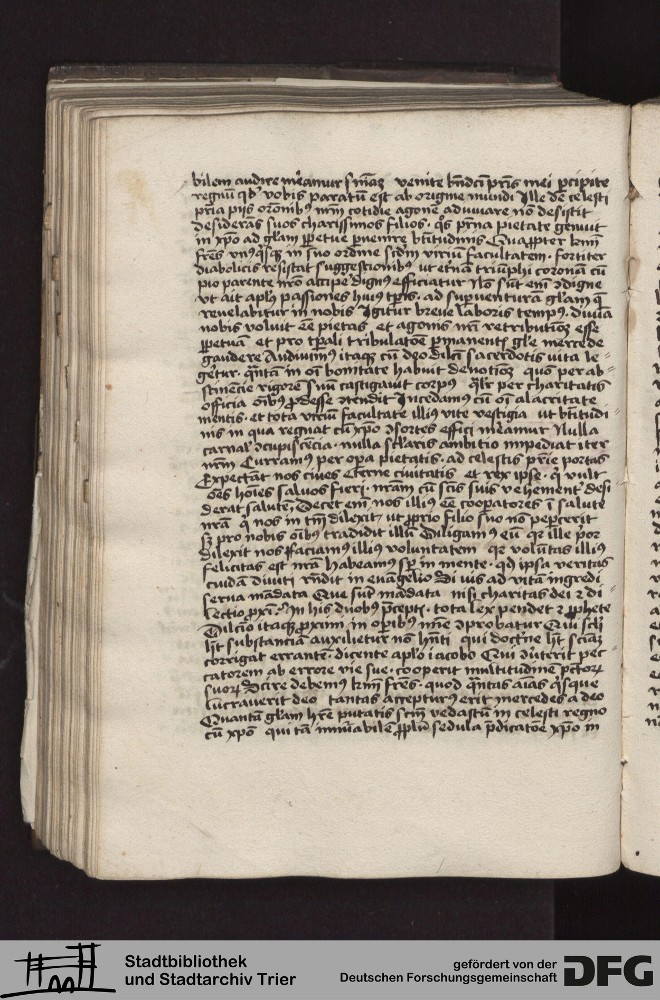 bilem audire mereamur sniaz venite bndci pris mei pcipite
regnu qd vobis paratu est ab origine mundi Ille de celesti
pria piis oronibus nrm cotidie agone aduuare no desistit
desiderās suos charissimos filios · qs prna pietate genuit
in xpo ad glam ppetue puenire btitudinis Quapter krmi
frēs vnusqsq in suo ordine scdm viriu facultatem · fortiter
diabolicis resistat suggestionibus ut etna triuphi coronam cu
pio parente nro accipe dignus efficiatur No sunt eni ɔdigne
vt ait aplus passiones huius tpris · ad superventura glam q
reuelabitur in nobis Igitur breue laboris tempus · diuia
nobis voluit ee pietas · et agonis nri retributiōz esse
ppetua et pro tpali tribulatōe pmanentis gle mercede
gaudere Audiuimus itaqz cu deo dilcti sacerdotis vita le-
geretur · qnta in oi bonitate habuit deuotioz quo per ab-
stinēcie rigore suu castigauit corpus qlr per charitatis
officia oibus pdesse ɔtendit Incedamus cu oi alacritate
mentis · et tota viriu facultate illius vite vestigia ut btitudi-
nis in qua regnat cu xpo ɔsortes effici mereamur Nulla
carnal' ɔcupiscēcia · nulla sclaris ambitio impediat iter
nrm Curramus per opa pietatis · ad celestis prie portas
Expectāt nos ciues eterne ciuitatis et rex ipse · q vult
oēs hoies saluos fieri · nram cu scis suis vehementer desi
derat salute, Decet eni nos illius ee coopatores i salute
nra q nos in tm dilexit ut pprio filio suo no pepcerit
sz pro nobis oibus tradidit illu Diligamus eu qr ille por
dilexit nos faciamus illius voluntatem qr volutas illius
felicitas est nra habeamus sp in mente · qd ipsa veritas
cuidā diuiti rndit in euagelio Si vis ad vitā ingredi
serua mādata Que sut mādata nisi charitas dei z di-
lectio pxi · In his duobus pceptis · tota lex pendet z pphete
Dilcio itaqz pximi in opibus mie ɔprobatur Qui scli
hēt substanciā auxilietur no hnti qui doctne hēt sciaz
corrigat errantē · dicente aplo iacobo Qui ɔuterit pec
catorem ab errore vie sue · cooperit multitudine pctorz
suorz Scire debemus krmi frēs · quod qntas aias qsque
lucrauerit deo tantas accepturus erit mercedes a deo
Quantā glam hre putatis scm vedastu in celesti regno
cu xpo qui tā inumabile pplm sedula pdicatōe xpo in
Stadtbibliothek
und Stadtarchiv Trier
gefördert von der
Deutschen Forschungsgemeinschaft
DFG